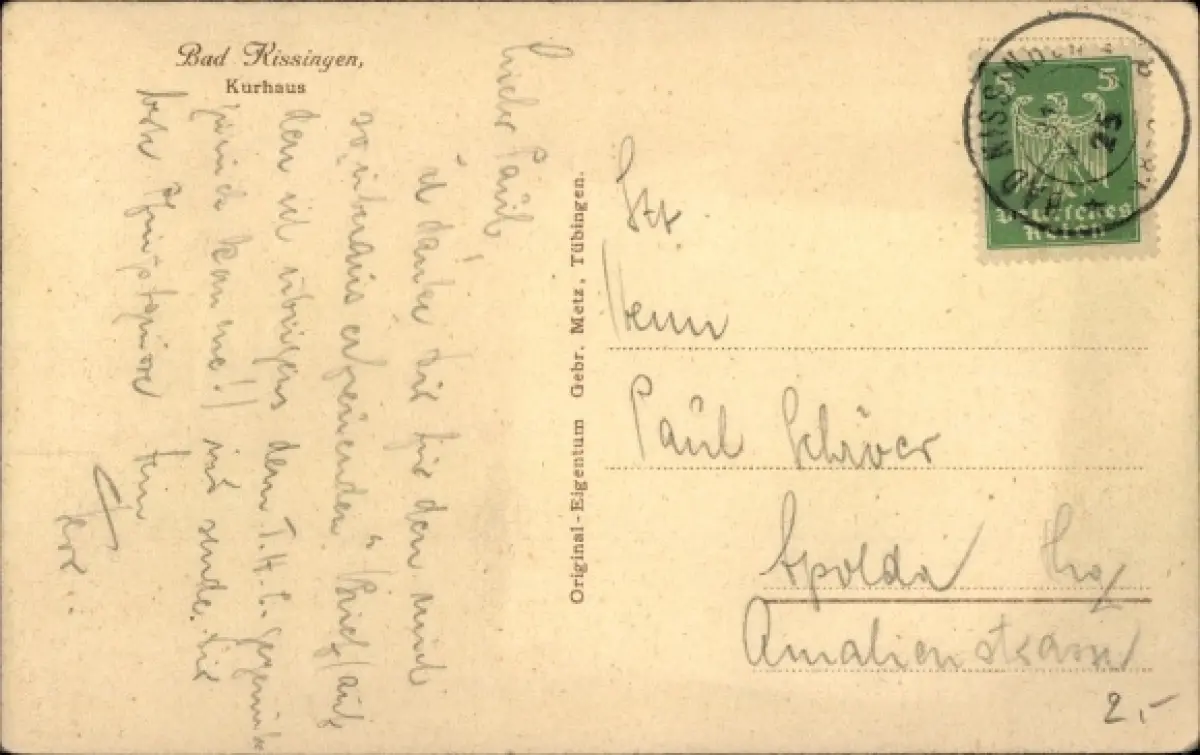 Bad Kissingen,
Kurhaus
Lieber Paul,
ich danke Dir für den mich
so überaus erfreuenden "Brief" (auf
den ich übrigens dem T.H.C. gegenüber
komme!) und sende Dir
beste Pfingstgrüsse
Original-Eigentum Gebr. Metz, Tübingen.
BAD KISSINGEN
25
5 5
Deutsches
Reich
Herrn
Paul Schröer
Apolda
Amalienstrasse
2,-